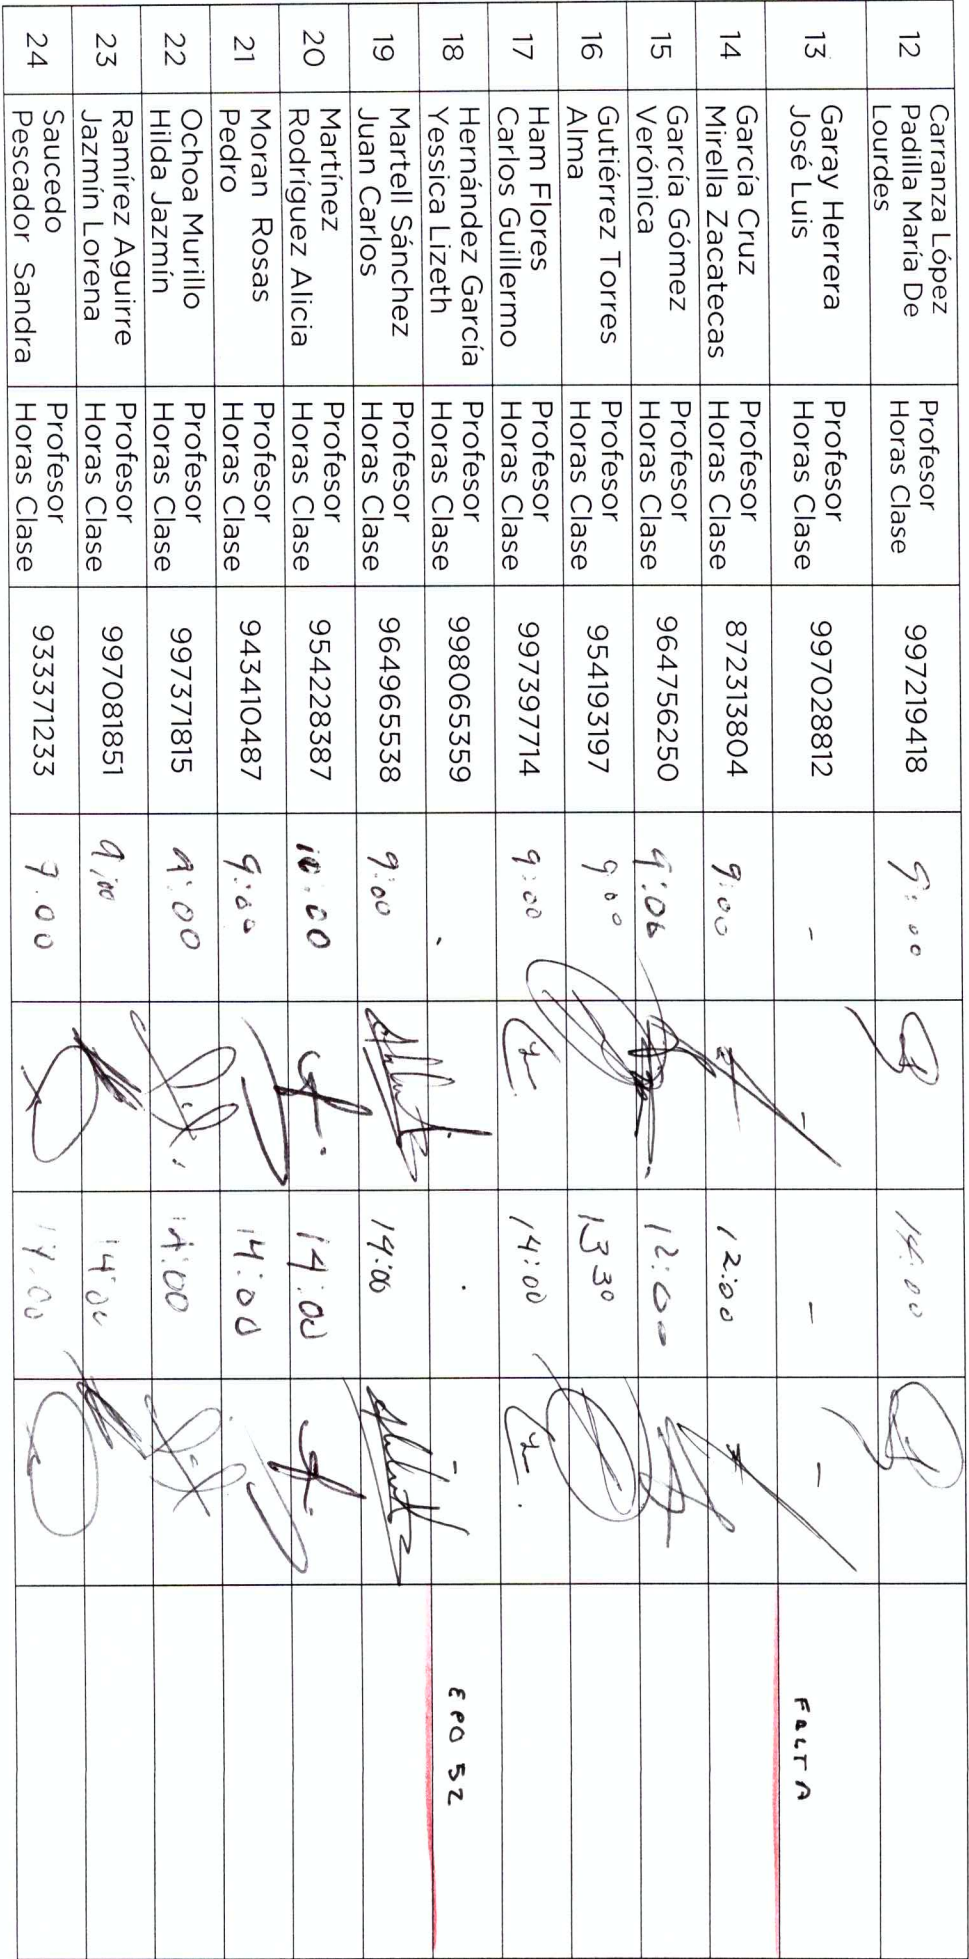 12 Carranza López Padilla María De Lourdes Profesor Horas Clase 997219418 9:00 14:00
13 Garay Herrera José Luis Profesor Horas Clase 997028812 - - - - FALTA
14 García Cruz Mirella Zacatecas Profesor Horas Clase 872313804 9:00 12:00
15 García Gómez Verónica Profesor Horas Clase 964756250 9:00 12:00
16 Gutiérrez Torres Alma Profesor Horas Clase 954193197 9:00 13:30
17 Ham Flores Carlos Guillermo Profesor Horas Clase 997397714 9:00 14:00
18 Hernández García Yessica Lizeth Profesor Horas Clase 998065359 EPO 52
19 Martell Sánchez Juan Carlos Profesor Horas Clase 964965538 9:00 14:00
20 Martínez Rodríguez Alicia Profesor Horas Clase 954228387 10:00 14:00
21 Moran Rosas Pedro Profesor Horas Clase 943410487 9:00 14:00
22 Ochoa Murillo Hilda Jazmín Profesor Horas Clase 997371815 9:00 14:00
23 Ramírez Aguirre Jazmín Lorena Profesor Horas Clase 997081851 9:00 14:00
24 Saucedo Pescador Sandra Profesor Horas Clase 933371233